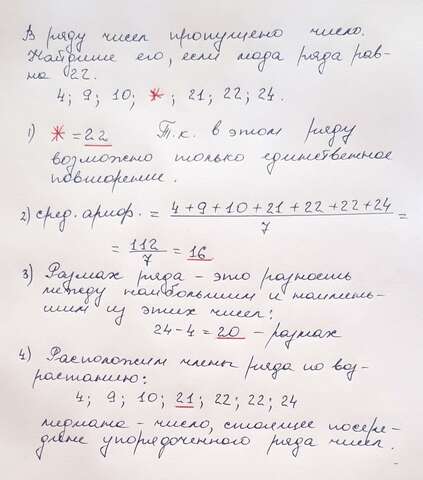 В ряду чисел пропущено число.
Найдите его, если мода ряда рав-
на 22.
4; 9; 10; *; 21; 22; 24.
1) * = 22 Т.к. в этом ряду
возможено только единственное
повторение.
2) сред. арифм. = 4+9+10+21+22+22+24 / 7 =
= 112 / 7 = 16
3) Размах ряда - это разность
между наибольшим и наимень-
шим из этих чисел:
24-4 = 20 - размах
4) Расположим члены ряда по воз-
растанию:
4; 9; 10; 21; 22; 22; 24
медиана - число, стоящее посере-
дине упорядоченного ряда чисел.